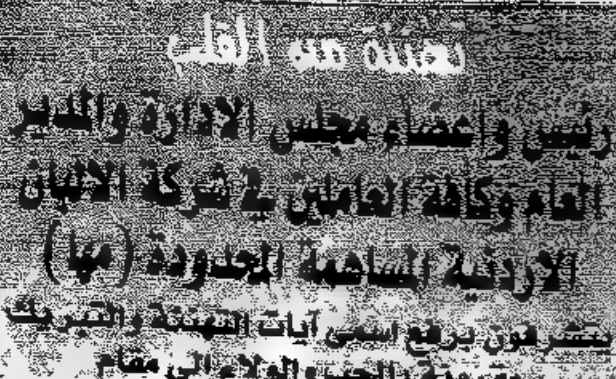 تهنئة من القلب
رئيس واعضاء مجلس الادارة والمدير
العام وكافة العاملين في شركة الالبان
الاردنية المساهمة المحدودة (مها)
يتشرفون برفع اسمى آيات التهنئة والتبريك
بالحب والولاء الى مقام